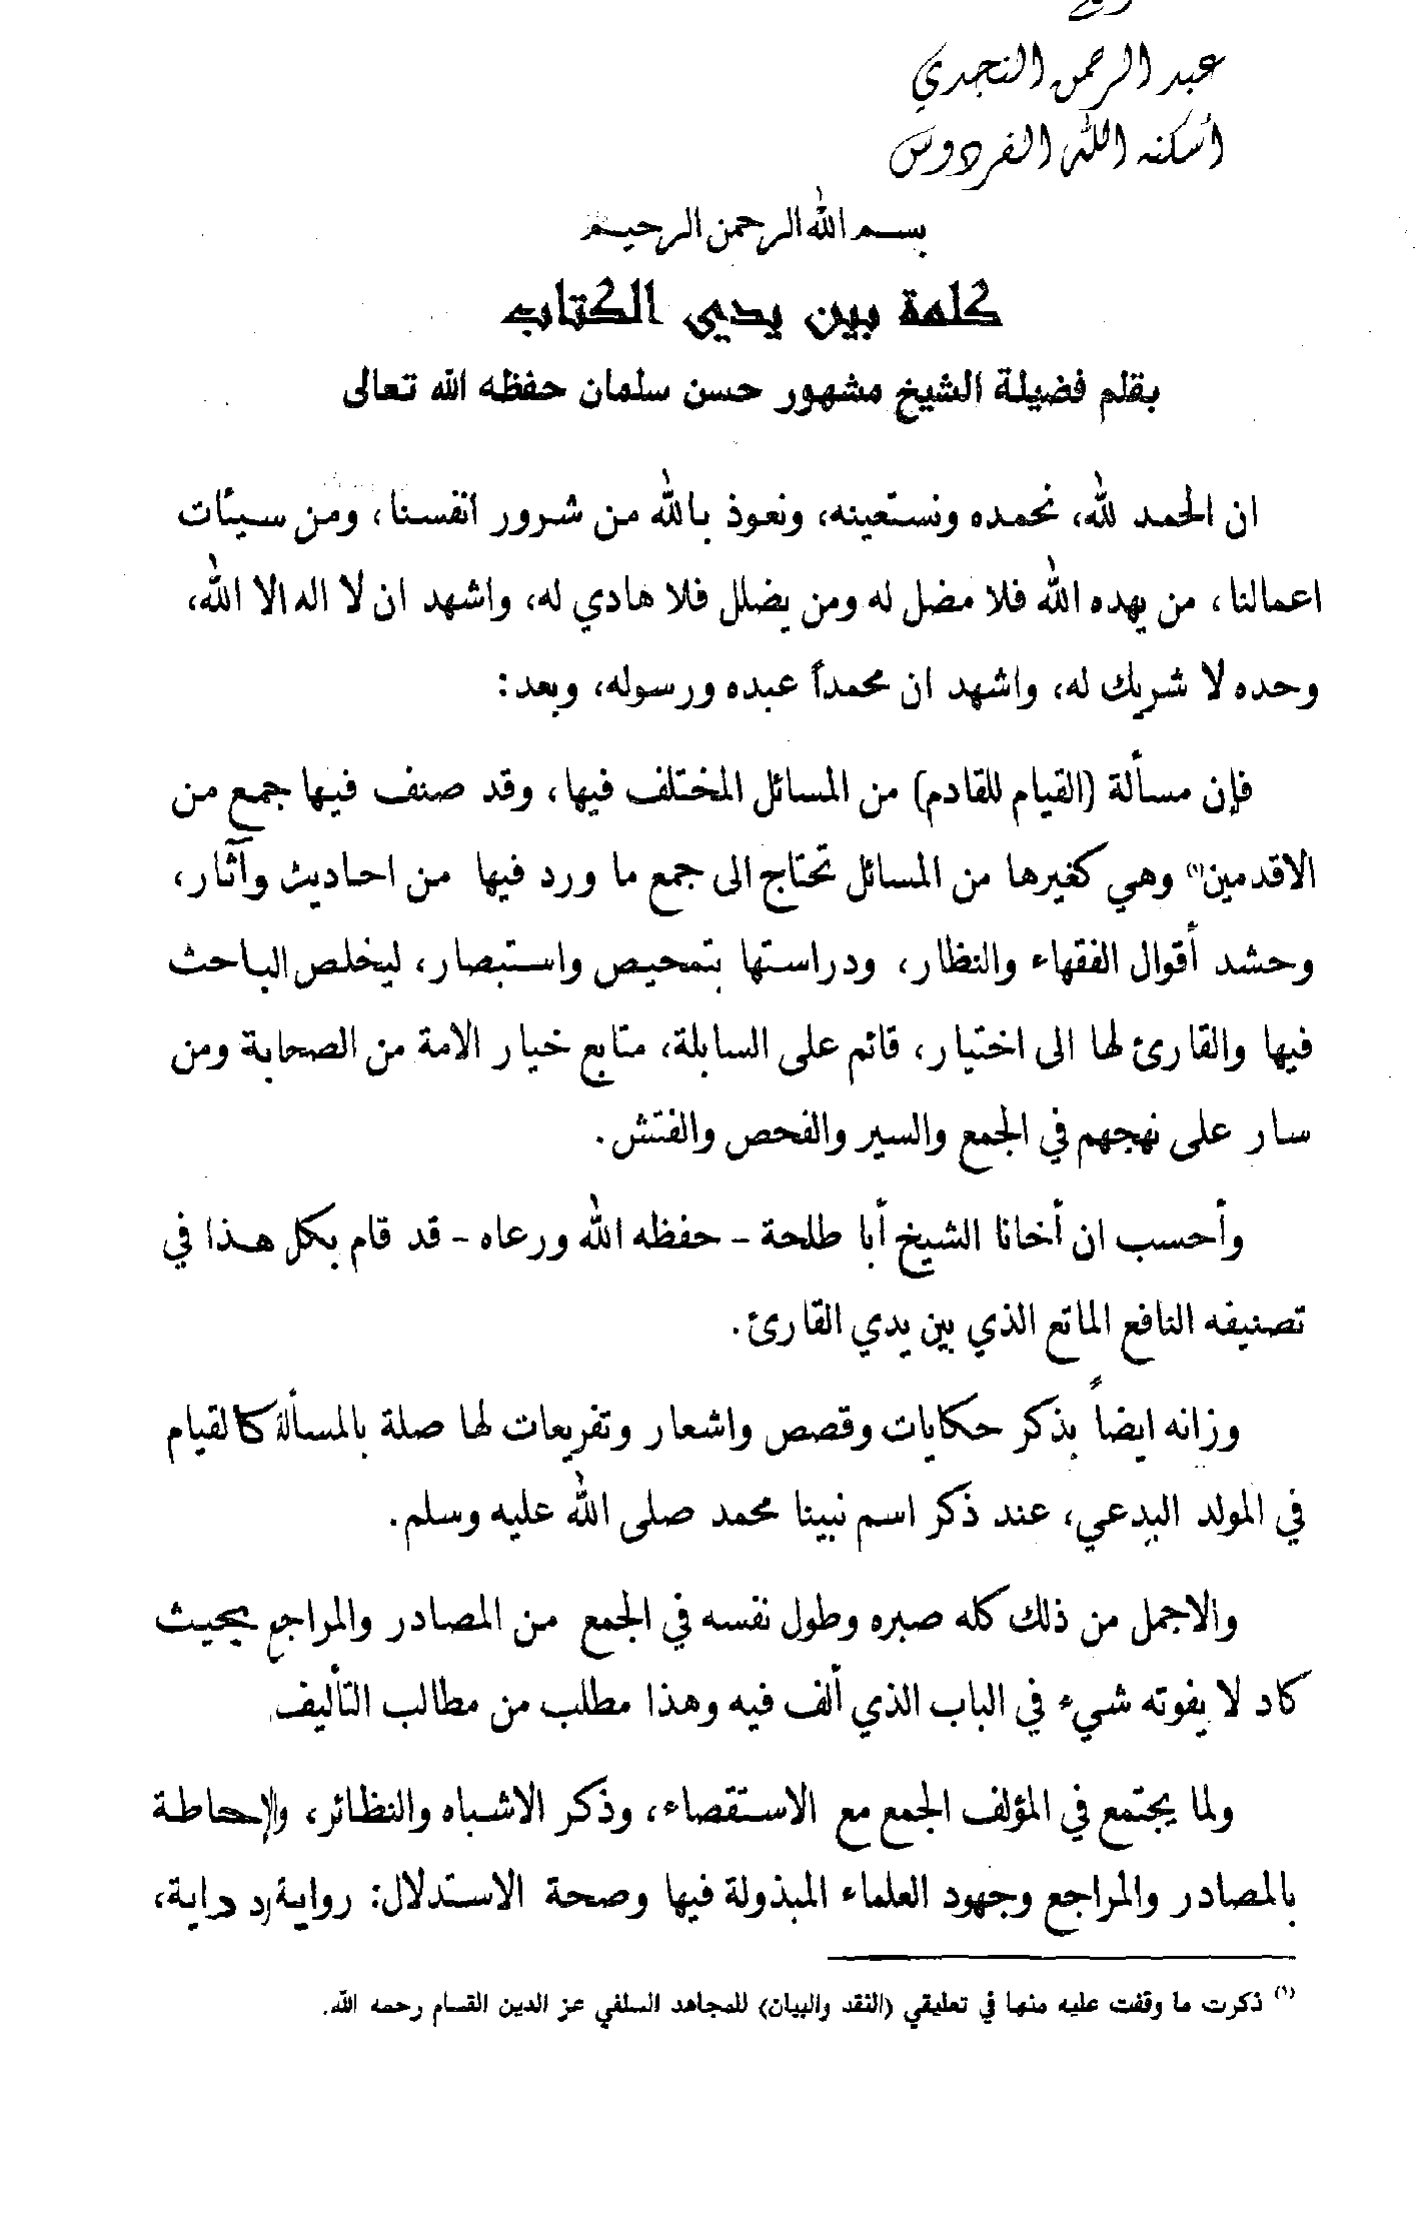 عبد الرحمن النجدي
أسكنه الله الفردوس
بسم الله الرحمن الرحيم
كلمة بين يدي الكتاب
بقلم فضيلة الشيخ مشهور حسن سلمان حفظه الله تعالى
ان الحمد لله، نحمده ونستعينه، ونعوذ بالله من شرور انفسنا، ومن سيئات
اعمالنا، من يهده الله فلا مضل له ومن يضلل فلا هادي له، واشهد ان لا اله الا الله،
وحده لا شريك له، واشهد ان محمداً عبده ورسوله، وبعد:
فإن مسألة (القيام للقادم) من المسائل المختلف فيها، وقد صنف فيها جمع من
الاقدمين(١) وهي كغيرها من المسائل تحتاج الى جمع ما ورد فيها من احاديث وآثار،
وحشد أقوال الفقهاء والنظار، ودراستها بتمحيص واستبصار، ليخلص الباحث
فيها والقارئ لها الى اختيار، قائم على السابلة، متابع خيار الامة من الصحابة ومن
سار على نهجهم في الجمع والسير والفحص والفتش.
وأحسب ان أخانا الشيخ أبا طلحة - حفظه الله ورعاه - قد قام بكل هذا في
تصنيفه النافع الماتع الذي بين يدي القارئ.
وزانه ايضاً بذكر حكايات وقصص واشعار وتفريعات لها صلة بالمسألة كالقيام
في المولد البدعي، عند ذكر اسم نبينا محمد صلى الله عليه وسلم.
والاجمل من ذلك كله صبره وطول نفسه في الجمع من المصادر والمراجع بحيث
كاد لا يفوته شيء في الباب الذي ألف فيه وهذا مطلب من مطالب التأليف.
ولما يجتمع في المؤلف الجمع مع الاستقصاء، وذكر الاشباه والنظائر، والإحاطة
بالمصادر والمراجع وجهود العلماء المبذولة فيها وصحة الاستدلال: رواية ودراية،
(١) ذكرت ما وقفت عليه منها في تعليقي (النقد والبيان) للمجاهد السلفي عز الدين القسام رحمه الله.